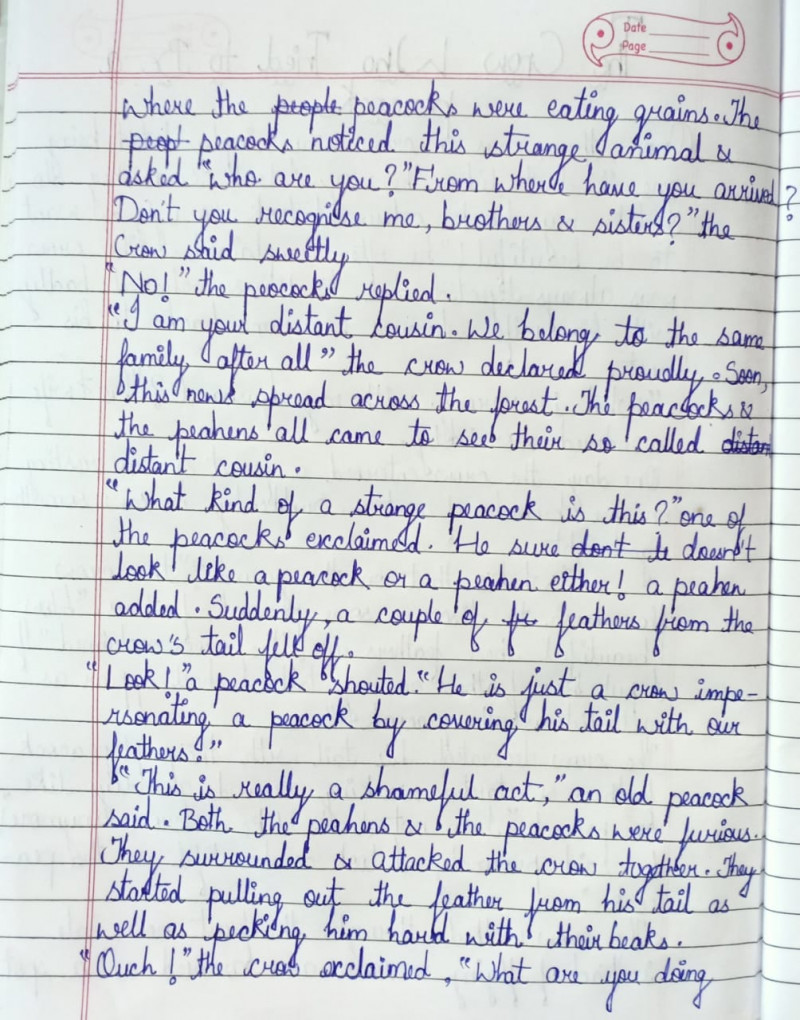 Date
Page
where the people peacocks were eating grains. The
peopt peacocks noticed this strange animal &
asked "who are you?" From where have you arrived?
Don't you recognise me, brothers & sisters?" the
Crow said sweetly
"No!" the peocock replied.
"I am your distant cousin. We belong to the same
family after all" the crow declared proudly. Soon,
this news spread across the forest. The peacocks &
the peahens all came to see their so called distan
distant cousin.
"What kind of a strange peacock is this?" one of
the peacocks exclaimed. He sure don't le doesn't
look like a peacock or a peahen either! a peahen
added. Suddenly, a couple of fe feathers from the
crow's tail fell off.
"Look!" a peacock shouted. "He is just a crow impe-
rsonating a peacock by covering his tail with our
feathers."
"This is really a shameful act," an old peacock
said. Both the peahens & the peacocks were furious.
They surrounded & attacked the crow together. They
started pulling out the feather from his tail as
well as pecking him hard with their beaks.
"Ouch!" the crow exclaimed, "What are you doing